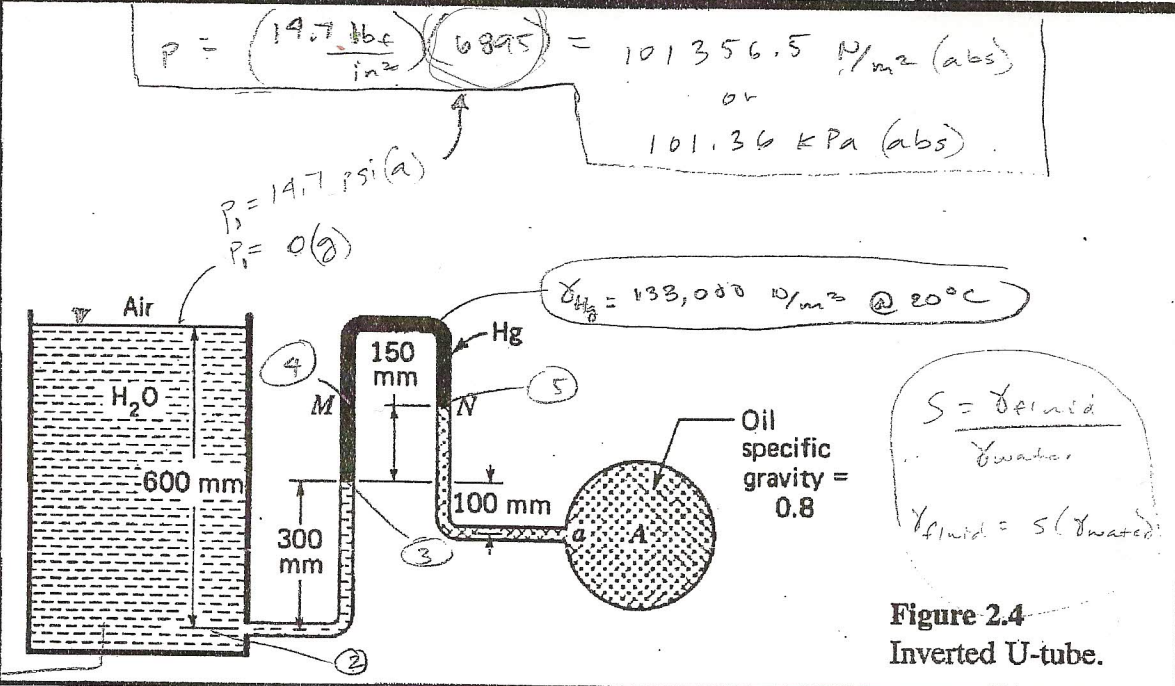 p = (14.7 lbf/in²)(6895) = 101356.5 N/m² (abs)
or
101.36 kPa (abs).
P₁ = 14.7 psi(a)
P₁ = 0(g)
γHg = 133,000 N/m³ @ 20°C
Air
Hg
150 mm
4
M
N
5
H₂O
600 mm
300 mm
100 mm
3
2
a
A
Oil
specific
gravity =
0.8
S = γfluid / γwater
γfluid = S(γwater)
Figure 2.4
Inverted U-tube.